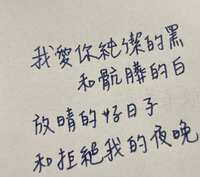 我愛你純潔的黑
和骯髒的白
放晴的好日子
和拒絕我的夜晚